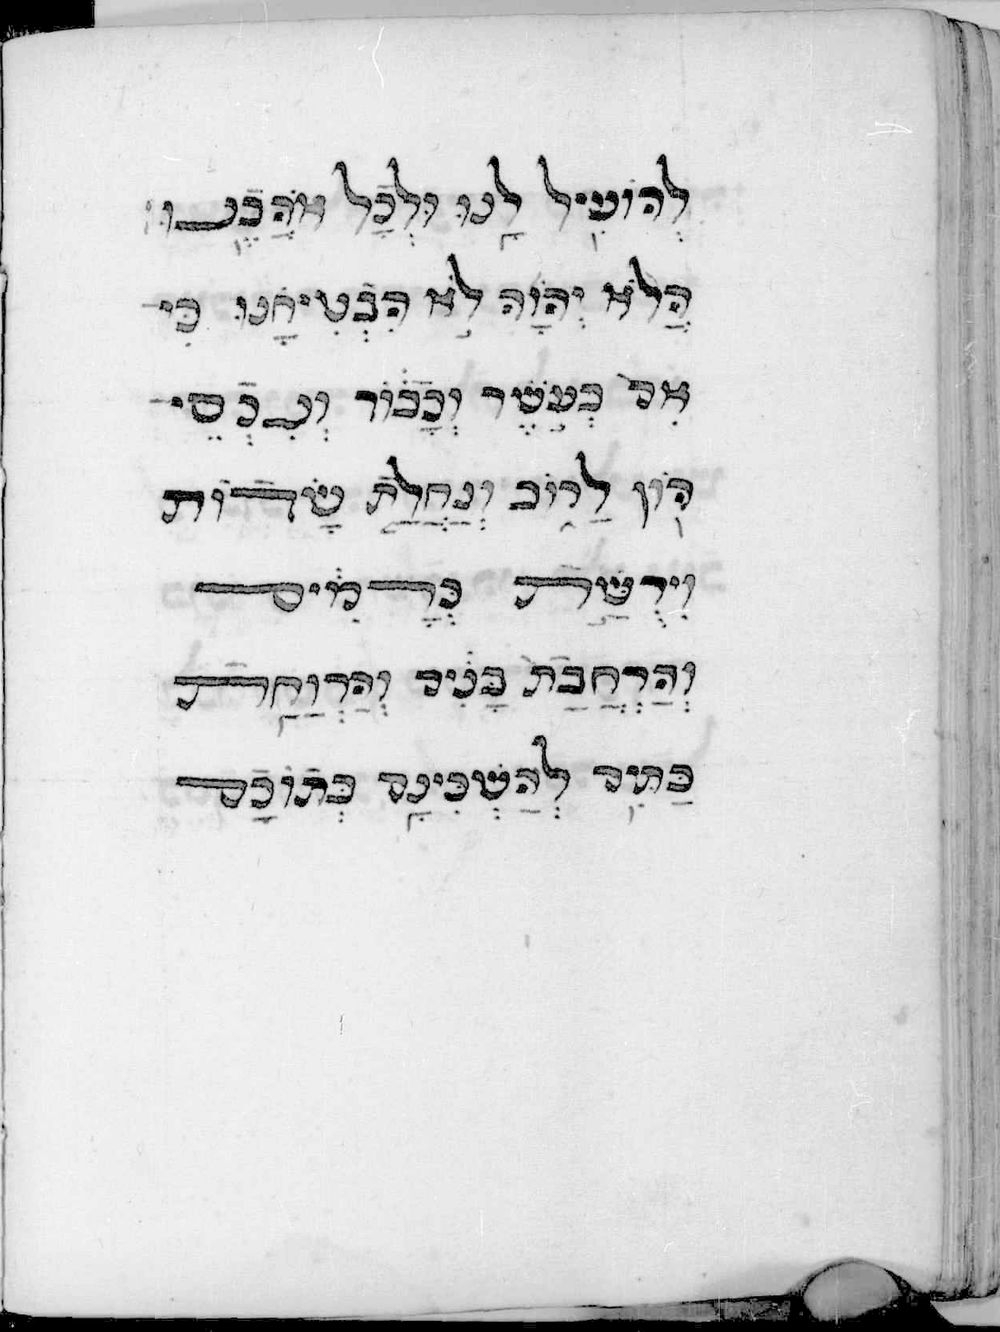 לְהוֹעִיל לָנוּ וּלְכָל אֹהֲבֵנוּ
הֲלֹא יְהוָה לֹא הִבְטִיחָנוּ כִּי
אִם בְּעֹשֶׁר וְכָבוֹד וְנִכְסֵי
הוֹן לָרוֹב וְנַחֲלַת שָׂדוֹת
וִירֻשַּׁת כְּרָמִים
וְהַרְחֲבַת בָּנִים וְהַרְוָחַת
בַּתִּים לְהַשְׁכִּינָם בְּתוֹכָם